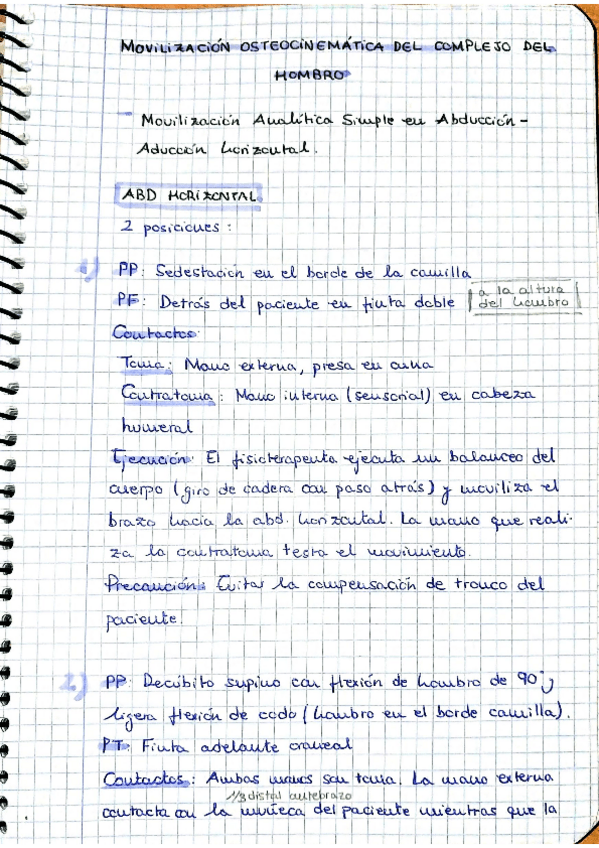 MOVILIZACIÓN OSTEOCINEMÁTICA DEL COMPLEJO DEL
HOMBRO
- Movilización Analítica Simple en Abducción -
Aducción horizontal.
ABD HORIZONTAL
2 posiciones :
1) PP: Sedestación en el borde de la camilla
PF: Detrás del paciente en finta doble a la altura
del hombro
Contactos:
Toma: Mano externa, presa en cuna
Contratoma: Mano interna (sensorial) en cabeza
humeral
Ejecución: El fisioterapeuta ejecuta un balanceo del
cuerpo (giro de cadera con paso atrás) y moviliza el
brazo hacia la abd. horizontal. La mano que reali-
za la contratoma testa el movimiento.
Precaución: Evitar la compensación de tronco del
paciente.
2) PP: Decúbito supino con flexión de hombro de 90° y
ligera flexión de codo (hombro en el borde camilla).
PT: Finta adelante craneal
Contactos: Ambas manos son toma. La mano externa
1/3 distal antebrazo
contacta con la muñeca del paciente mientras que la